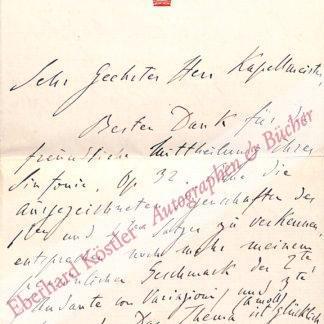 Sehr Geehrter Herr Kapellmeister,
Besten Dank für die
freundliche Mittheilung Ihrer
Sinfonie, Op. 32. die
ausgezeichneten Eigenschaften des
1ten und Satzes zu verkennen,
entspr noch mehr meinem
persönlichen Geschmack der 2te
Andante con Variazioni und 3te
(a moll)
Das Thema ist glücklich
Eberhard Köstler Autographen & Bücher